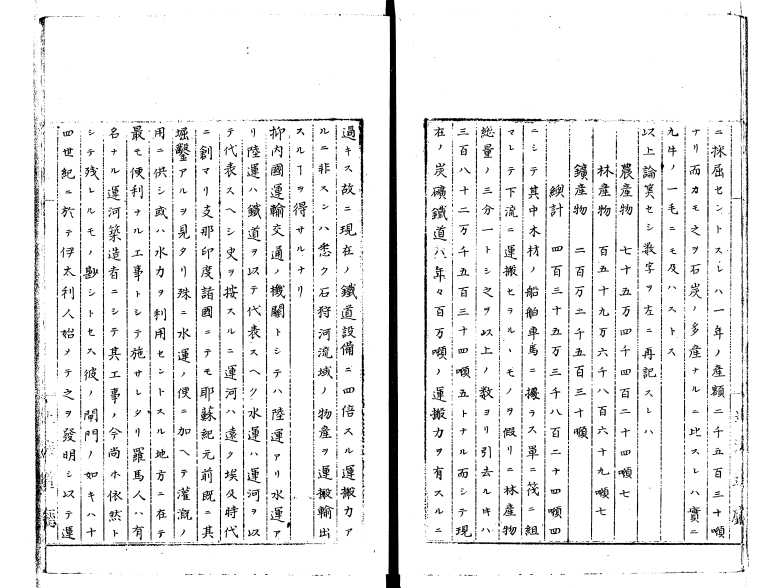 ニ採屈セントスレハ一年ノ産額二千五百三十噸
ナリ而カモ之ヲ石炭ノ多産ナルニ比スレハ實ニ
九牛ノ一毛ニモ及ハストス
以上論算セシ数字ヲ左ニ再記スレハ
農産物 七十五万四千四百二十四噸七
林産物 百五十九万六千八百六十九噸七
鑛産物 二百万二千五百三十噸
総計 四百三十五万三千八百二十四噸四
ニシテ其中木材ノ船舶車馬ニ擾ラス單ニ筏ニ組
マレテ下流ニ運搬セラルヽモノヲ假リニ林産物
総量ノ三分一トシ之ヲ以上ノ数ヨリ引去ルキハ
三百八十二万千五百三十四噸五トナル而シテ現
在ノ炭礦鐵道ハ年々百万噸ノ運搬力ヲ有スルニ
過キス故ニ現在ノ鐵道設備ニ四倍スル運搬力ア
ルニ非スンハ悉ク石狩河流域ノ物産ヲ運搬輸出
スルヿヲ得サルナリ
抑内國運輸交通ノ機關トシテハ陸運アリ水運ア
リ陸運ハ鐵道ヲ以テ代表スヘク水運ハ運河ヲ以
テ代表スヘシ史ヲ按スルニ運河ハ遠ク埃及時代
ニ創マリ支那印度諸國ニテモ耶蘇紀元前既ニ其
堀鑿アルヲ見タリ殊ニ水運ノ便ニ加ヘテ灌漑ノ
用ニ供シ或ハ水力ヲ利用セントスル地方ニ在テ
最モ便利ナル工事トシテ施サレタリ羅馬人ハ有
名ナル運河築造者ニシテ其工事ノ今尚ホ依然ト
シテ残レルモノ尠シトセス彼ノ閘門ノ如キハ十
四世紀ニ於テ伊太利人始メテ之ヲ發明シ以テ運